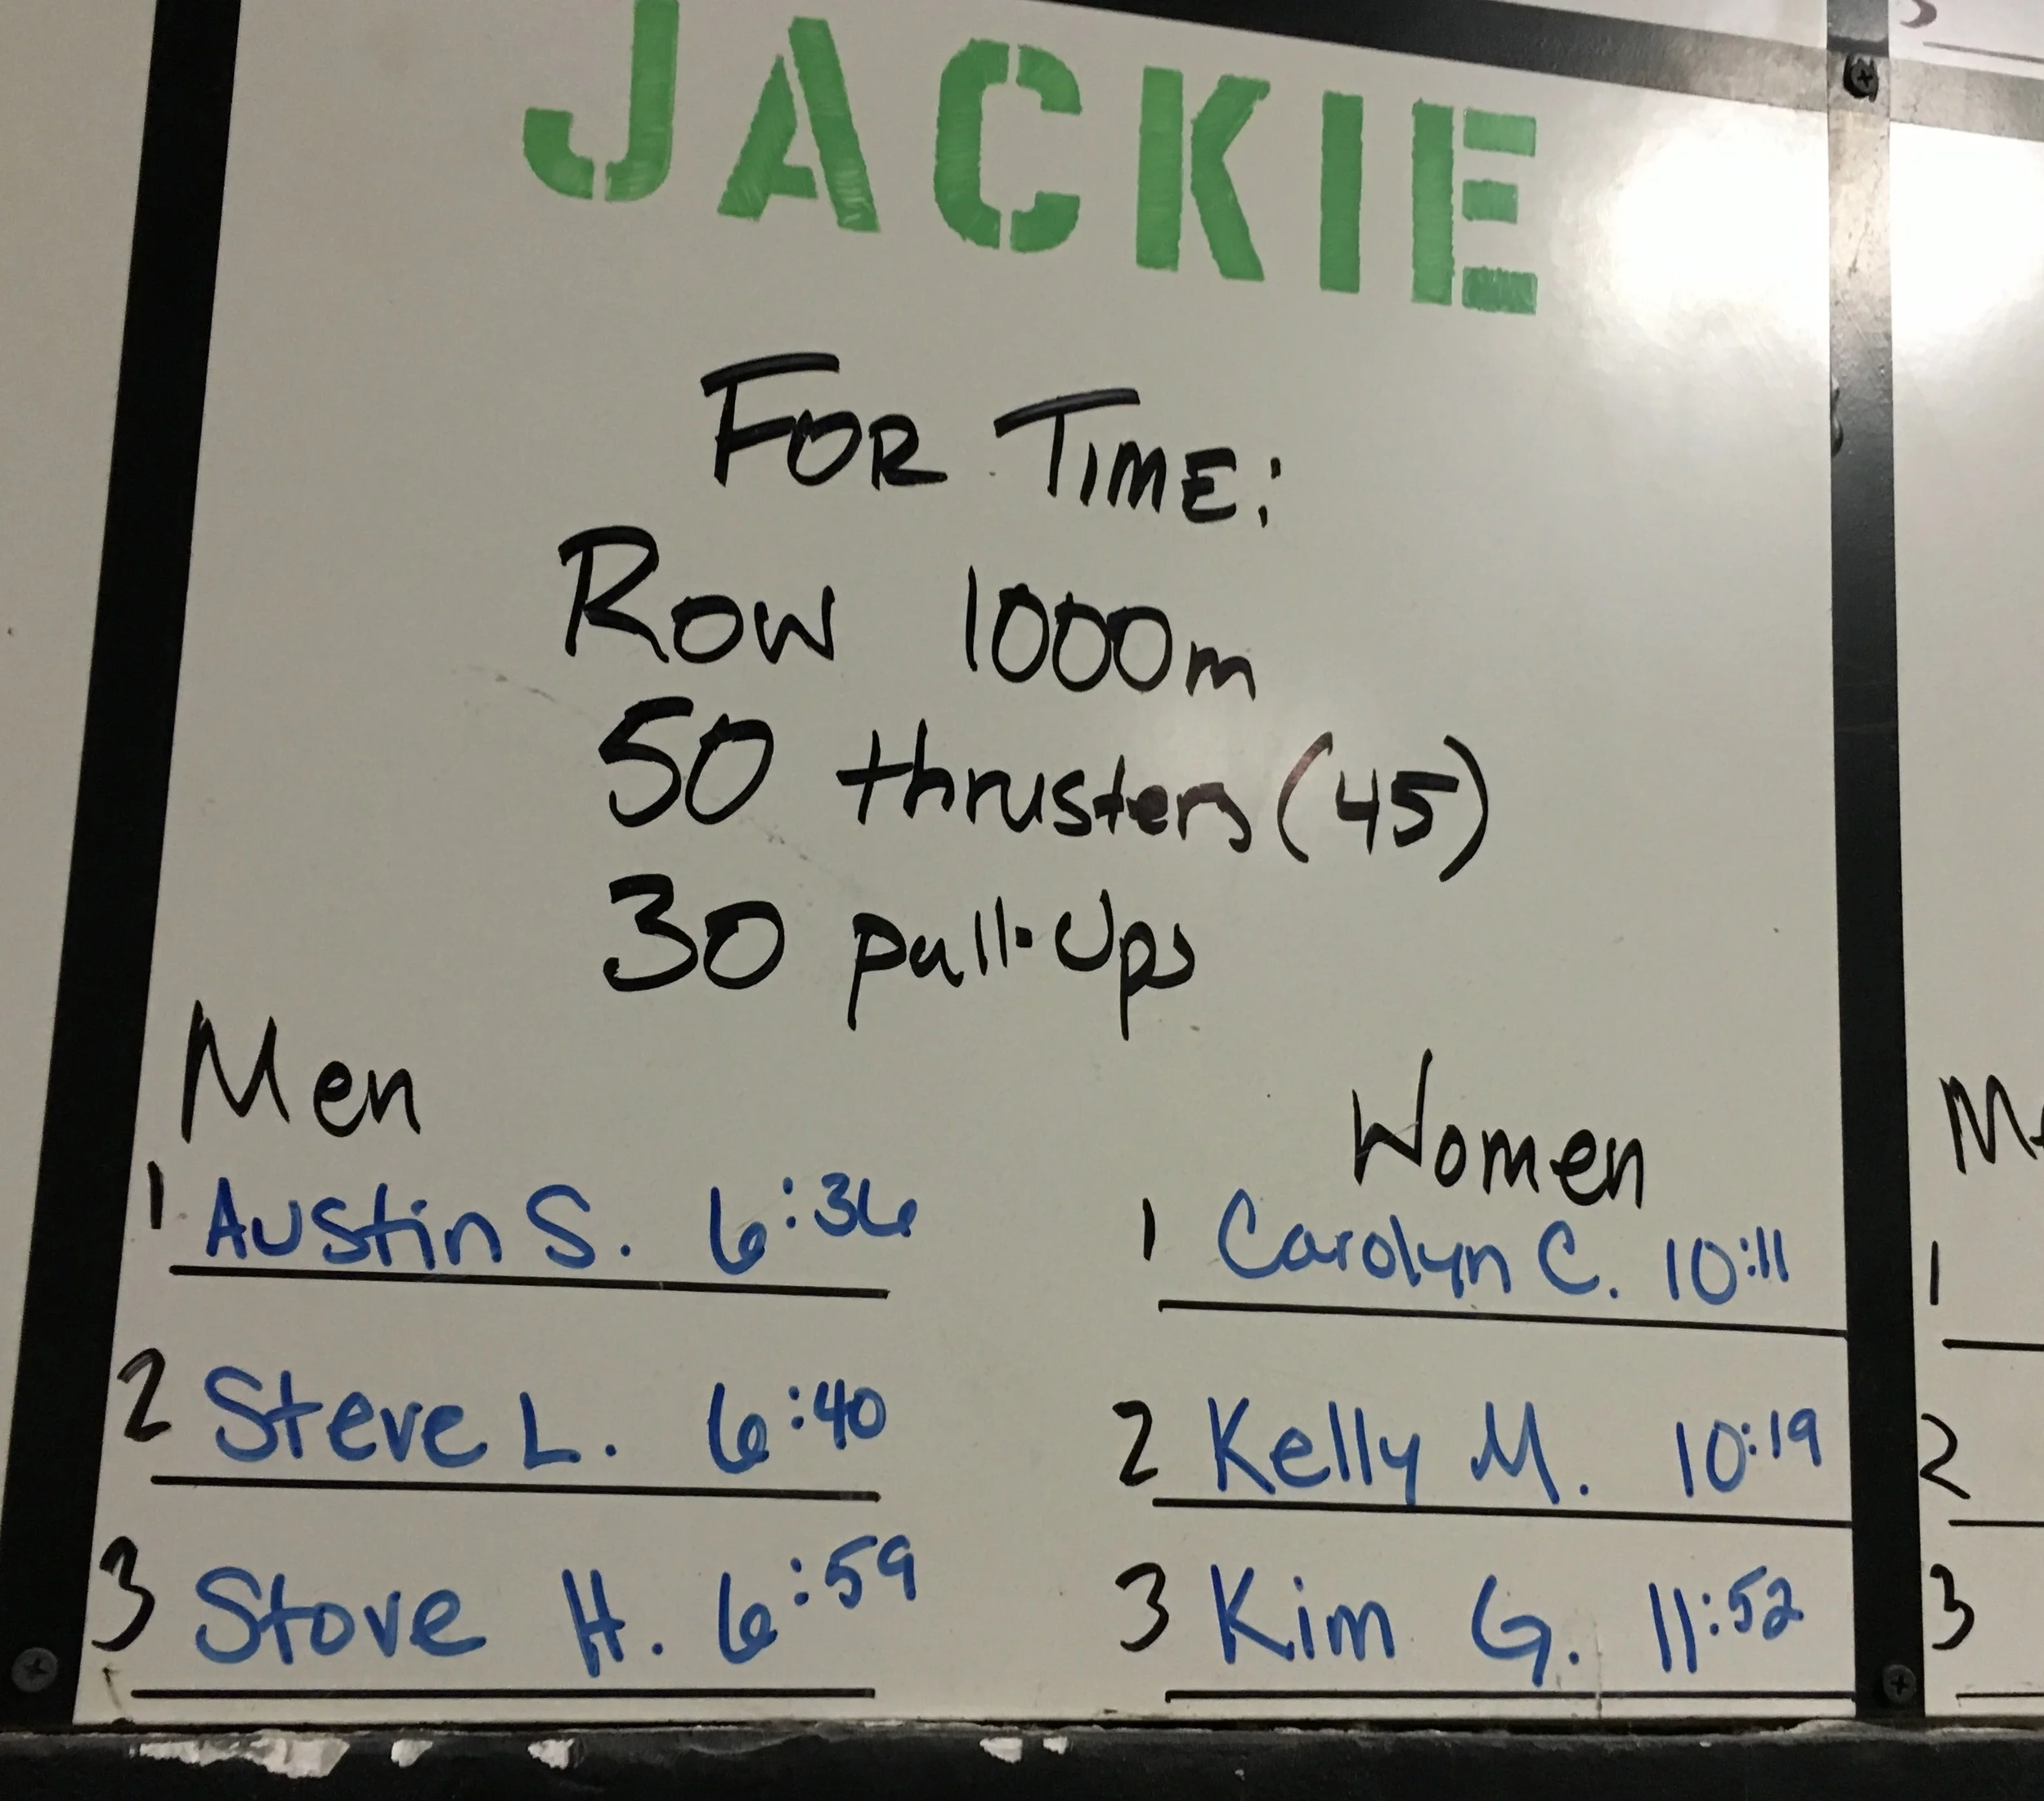 JACKIE
FOR TIME:
ROW 1000m
50 thrusters (45)
30 pull-ups
Men
1 Austin S. 6:36
2 Steve L. 6:40
3 Stove H. 6:59
Women
1 Carolyn C. 10:11
2 Kelly M. 10:19
3 Kim G. 11:52
1
2
3